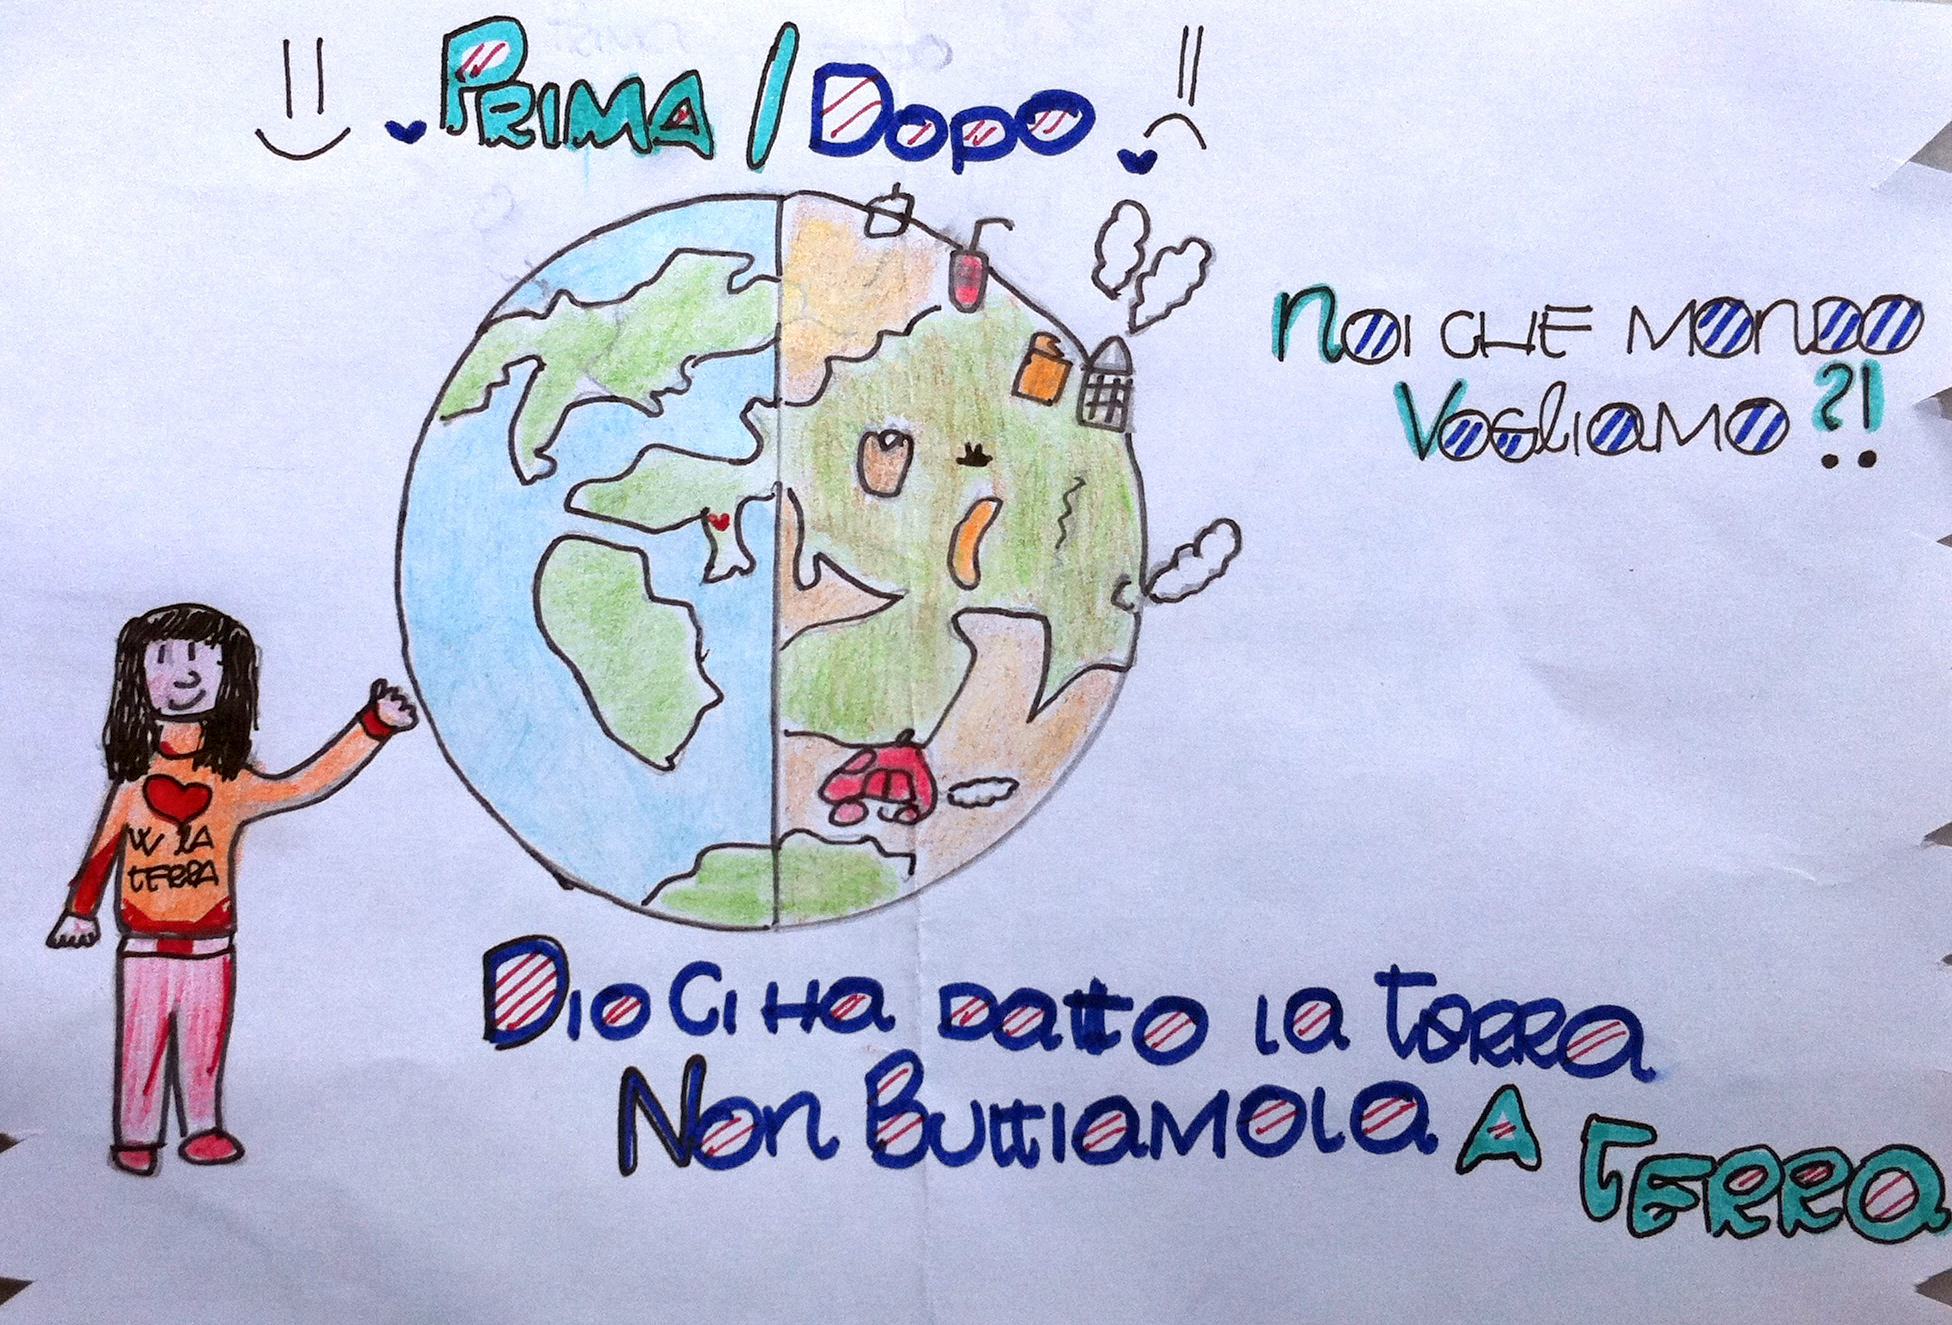 PRIMA / DOPO
NOI CHE MONDO
VOGLIAMO ?!
W LA
TERRA
DIO CI HA DATTO LA TERRA
NON BUTTIAMOLA A TERRA